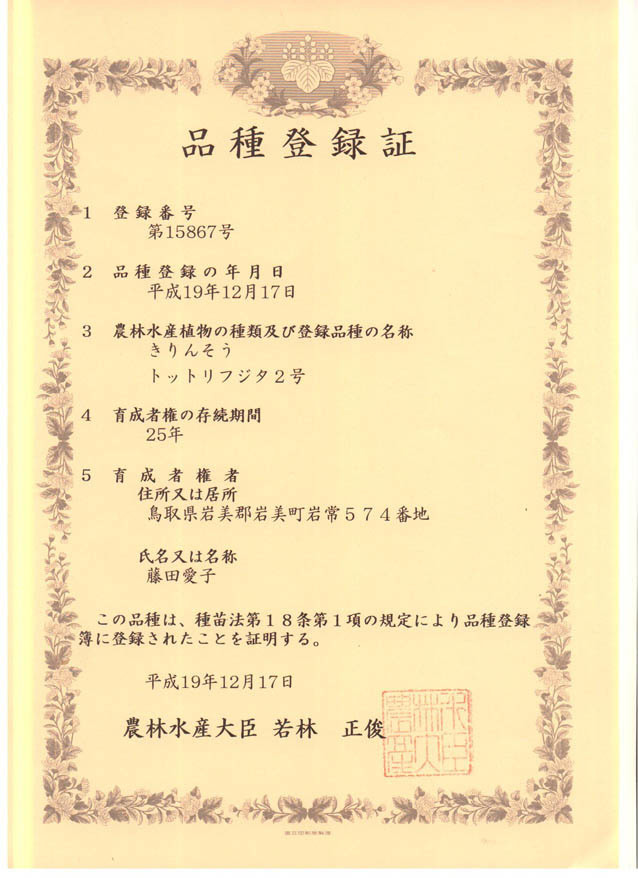 品種登録証
1 登録番号
第15867号
2 品種登録の年月日
平成19年12月17日
3 農林水産植物の種類及び登録品種の名称
きりんそう
トットリフジタ2号
4 育成者権の存続期間
25年
5 育成者権者
住所又は居所
鳥取県岩美郡岩美町岩常574番地
氏名又は名称
藤田愛子
この品種は、種苗法第18条第1項の規定により品種登録
簿に登録されたことを証明する。
平成19年12月17日
農林水産大臣 若林 正俊